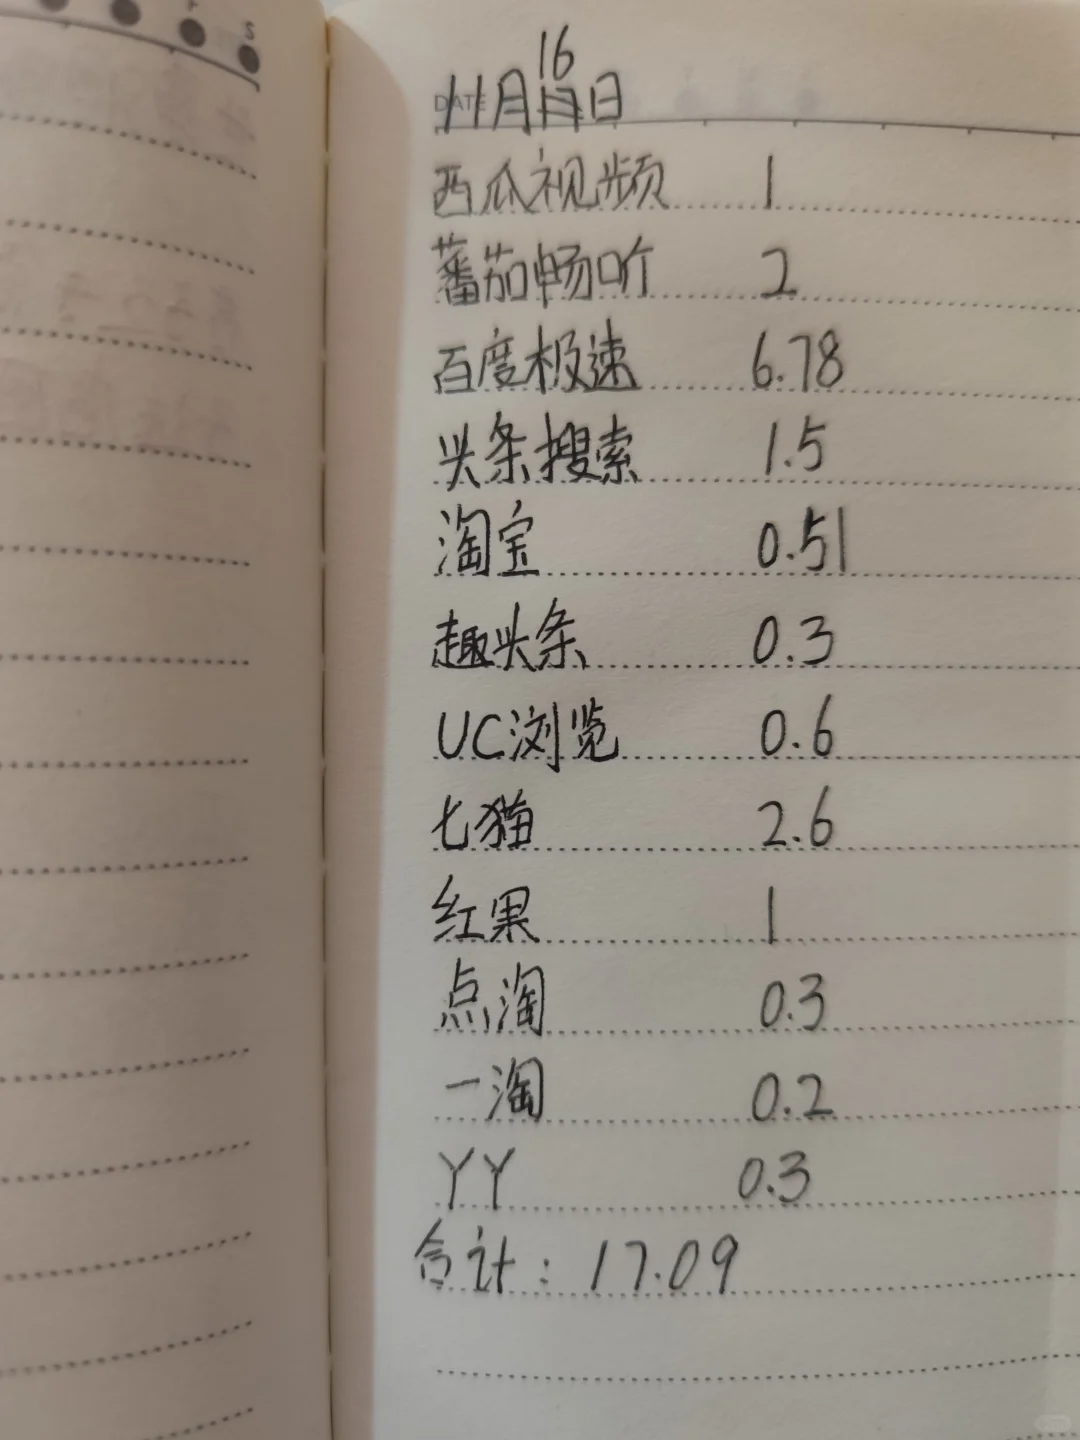 S
DATE
16
11月日
西瓜视频 1
蕃茄畅听 2
百度极速 6.78
头条搜索 1.5
淘宝 0.51
趣头条 0.3
UC浏览 0.6
七猫 2.6
红果 1
点淘 0.3
一淘 0.2
YY 0.3
合计: 17.09